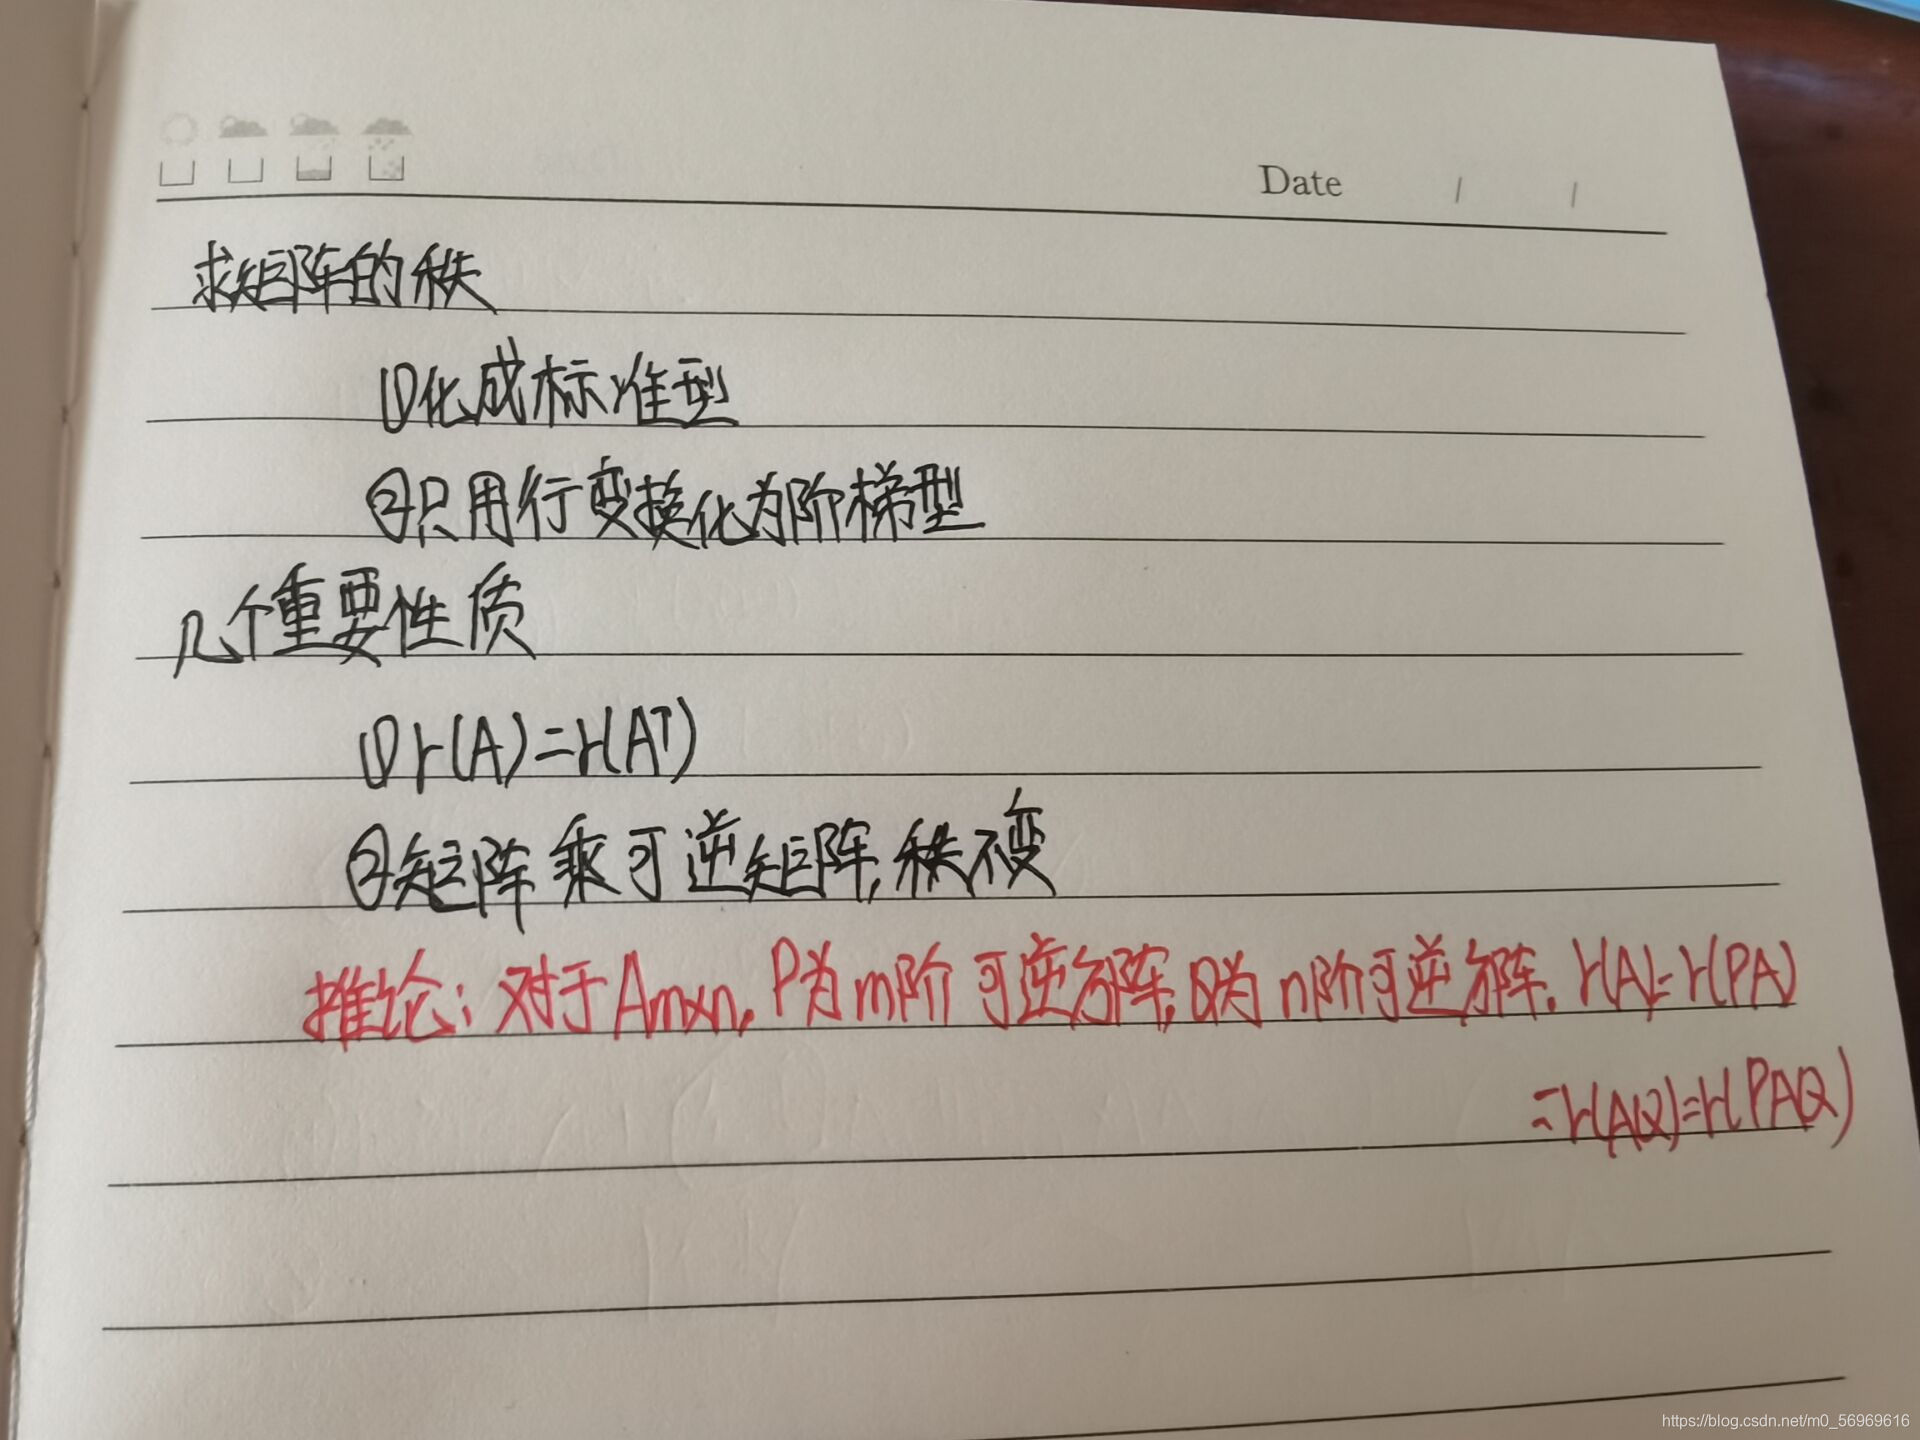 Date / /
求矩阵的秩
①化成标准型
②只用行变换化为阶梯型
几个重要性质
①r(A)=r(Aᵀ)
②矩阵乘可逆矩阵,秩不变
推论:对于Am×n,P为m阶可逆方阵,Q为n阶可逆方阵,r(A)=r(PA)
=r(AQ)=r(PAQ)
https://blog.csdn.net/m0_56969616